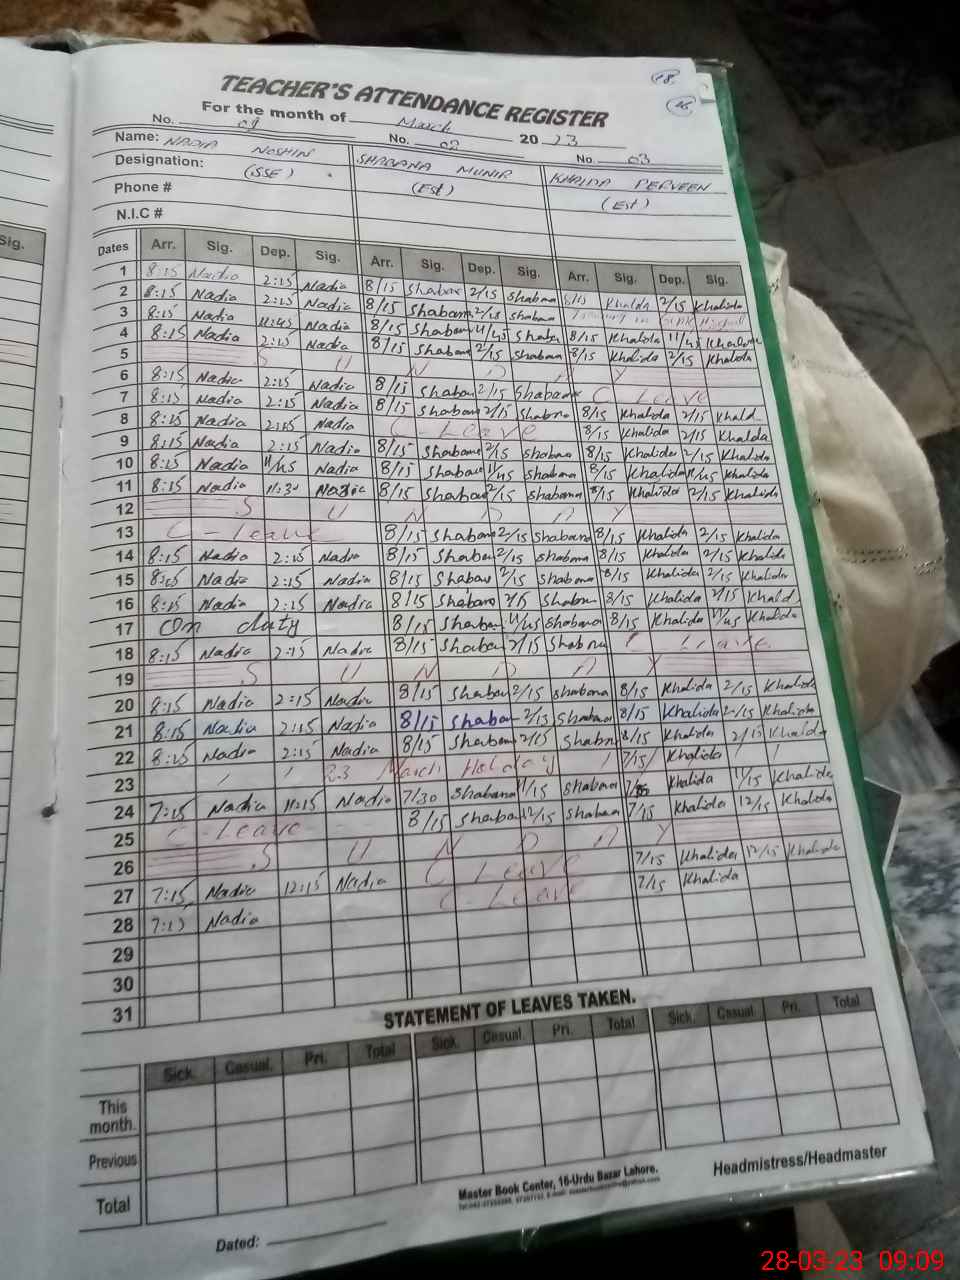 Sig.
18
16
TEACHER'S ATTENDANCE REGISTER
For the month of March 2023
No. 01 No. 02 No 03
Name: NADIA NOSHIN SHABANA MUNIR KHALIDA PERVEEN
Designation: (SSE) (Est) (Est)
Phone #
N.I.C #
Dates Arr. Sig. Dep. Sig. Arr. Sig. Dep. Sig. Arr. Sig. Dep. Sig.
1 8:15 Nadia 2:15 Nadia 8/15 Shabana 2/15 Shabana 8/15 Khalida 2/15 Khalida
2 8:15 Nadia 2:15 Nadia 8/15 Shabana 2/15 Shabana
3 8:15 Nadia 11:45 Nadia 8/15 Shabana 11/45 Shaba 8/15 Khalida 11/45 Khalida
4 8:15 Nadia 2:15 Nadia 8/15 Shabana 2/15 Shabana 8/15 Khalida 2/15 Khalida
5 S U N D A Y
6 8:15 Nadia 2:15 Nadia 8/15 Shaban 2/15 Shabana C Leave
7 8:15 Nadia 2:15 Nadia 8/15 Shabana 2/15 Shabna 8/15 Khalida 2/15 Khald
8 8:15 Nadia 2:15 Nadia C - Leave 8/15 Khalida 2/15 Khalda
9 8:15 Nadia 2:15 Nadia 8/15 Shabana 2/15 Shabana 8/15 Khalida 2/15 Khalida
10 8:15 Nadia 11/45 Nadia 8/15 Shabana 11/45 Shabana 8/15 Khalida 11/45 Khalida
11 8:15 Nadia 11:30 Nadia 8/15 Shaban 2/15 Shabana 8/15 Khalida 2/15 Khalida
12 S U N D A Y
13 C - Leave 8/15 Shabana 2/15 Shabana 8/15 Khalida 2/15 Khalida
14 8:15 Nadia 2:15 Nadia 8/15 Shaban 2/15 Shabana 8/15 Khalida 2/15 Khalida
15 8:15 Nadia 2:15 Nadia 8/15 Shabav 2/15 Shabana 8/15 Khalida 2/15 Khalida
16 8:15 Nadia 2:15 Nadia 8/15 Shabana 2/15 Shabna 8/15 Khalida 2/15 Khald
17 On duty 8/15 Shaban 11/45 Shabana 8/15 Khalida 11/45 Khalida
18 8:15 Nadia 2:15 Nadia 8/15 Shaban 2/15 Shabna C Leave
19 S U N D A Y
20 8:15 Nadia 2:15 Nadia 8/15 Shaban 2/15 Shabana 8/15 Khalida 2/15 Khalida
21 8:15 Nadia 2:15 Nadia 8/15 Shaban 2/15 Shabana 8/15 Khalida 2/15 Khalida
22 8:15 Nadia 2:15 Nadia 8/15 Shabana 2/15 Shabna 8/15 Khalida 2/15 Khalda
23 23 March Holiday 7/15 Khalida
24 7:15 Nadia 11:15 Nadia 7/30 Shabana 11/15 Shabana Khalida 11/15 Khalida
25 C - Leave 8/15 Shaba 12/15 Shabana 7/15 Khalida 12/15 Khalida
26 S U N D A Y
27 7:15 Nadia 12:15 Nadia C Leave 7/15 Khalida 12/15 Khalida
28 7:15 Nadia C - Leave 7/15 Khalida
29
30
31
STATEMENT OF LEAVES TAKEN.
Sick. Casual. Pri. Total Sick. Casual. Pri. Total Sick. Casual Pri. Total
This month.
Previous
Total
Master Book Center, 16-Urdu Bazar Lahore.
Headmistress/Headmaster
Dated:
28-03-23 09:09